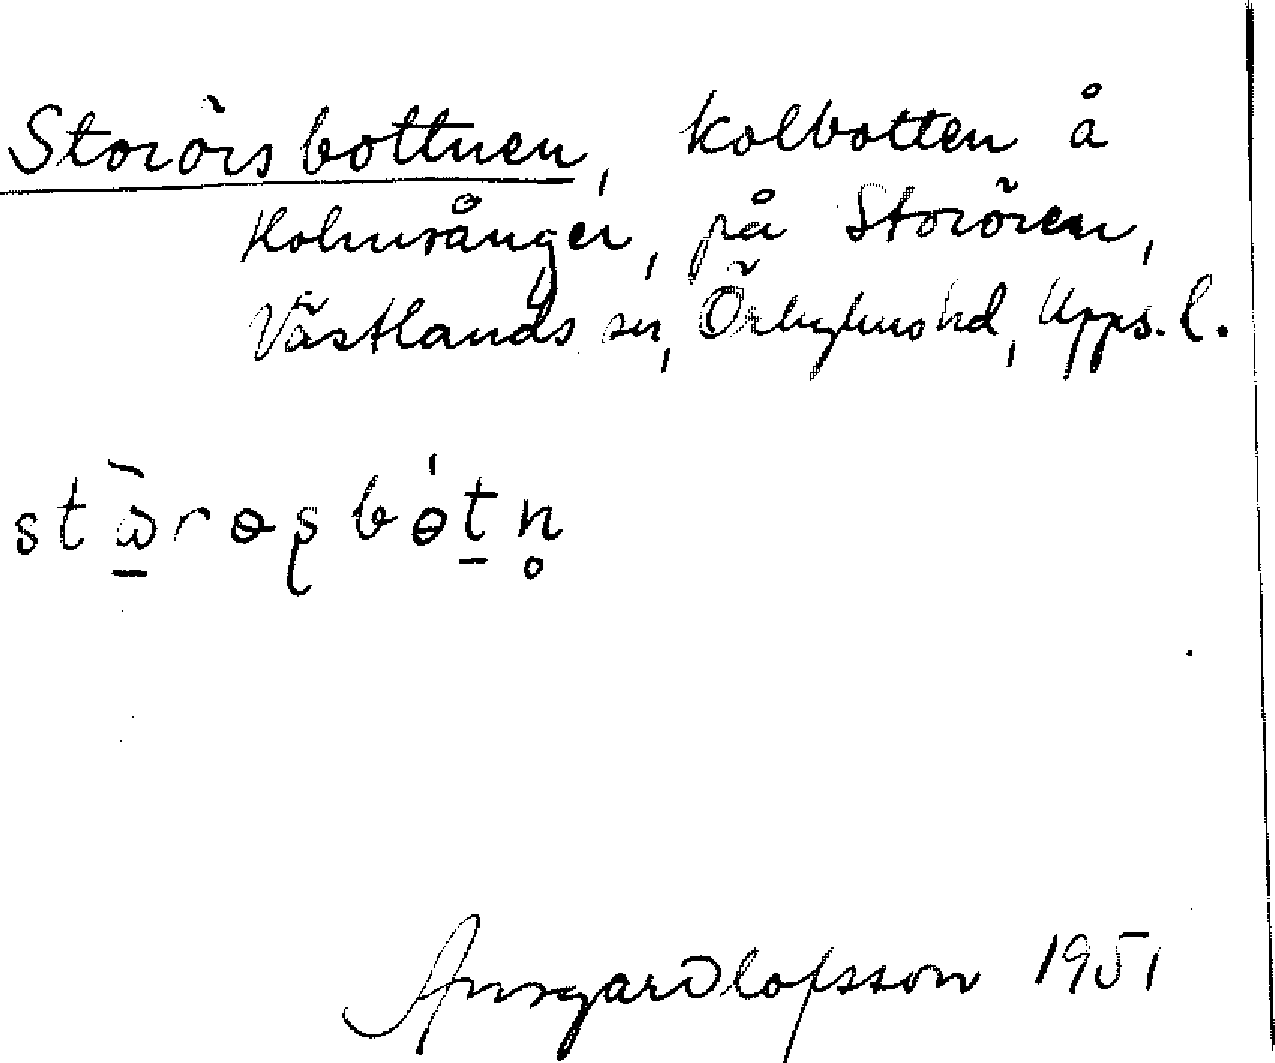 Storörsbottnen, kolbotten å
Kolmvånger, på Storören,
Västlands sn, Örbyhus hd, Upps. l.
Ansgar Olofsson 1951